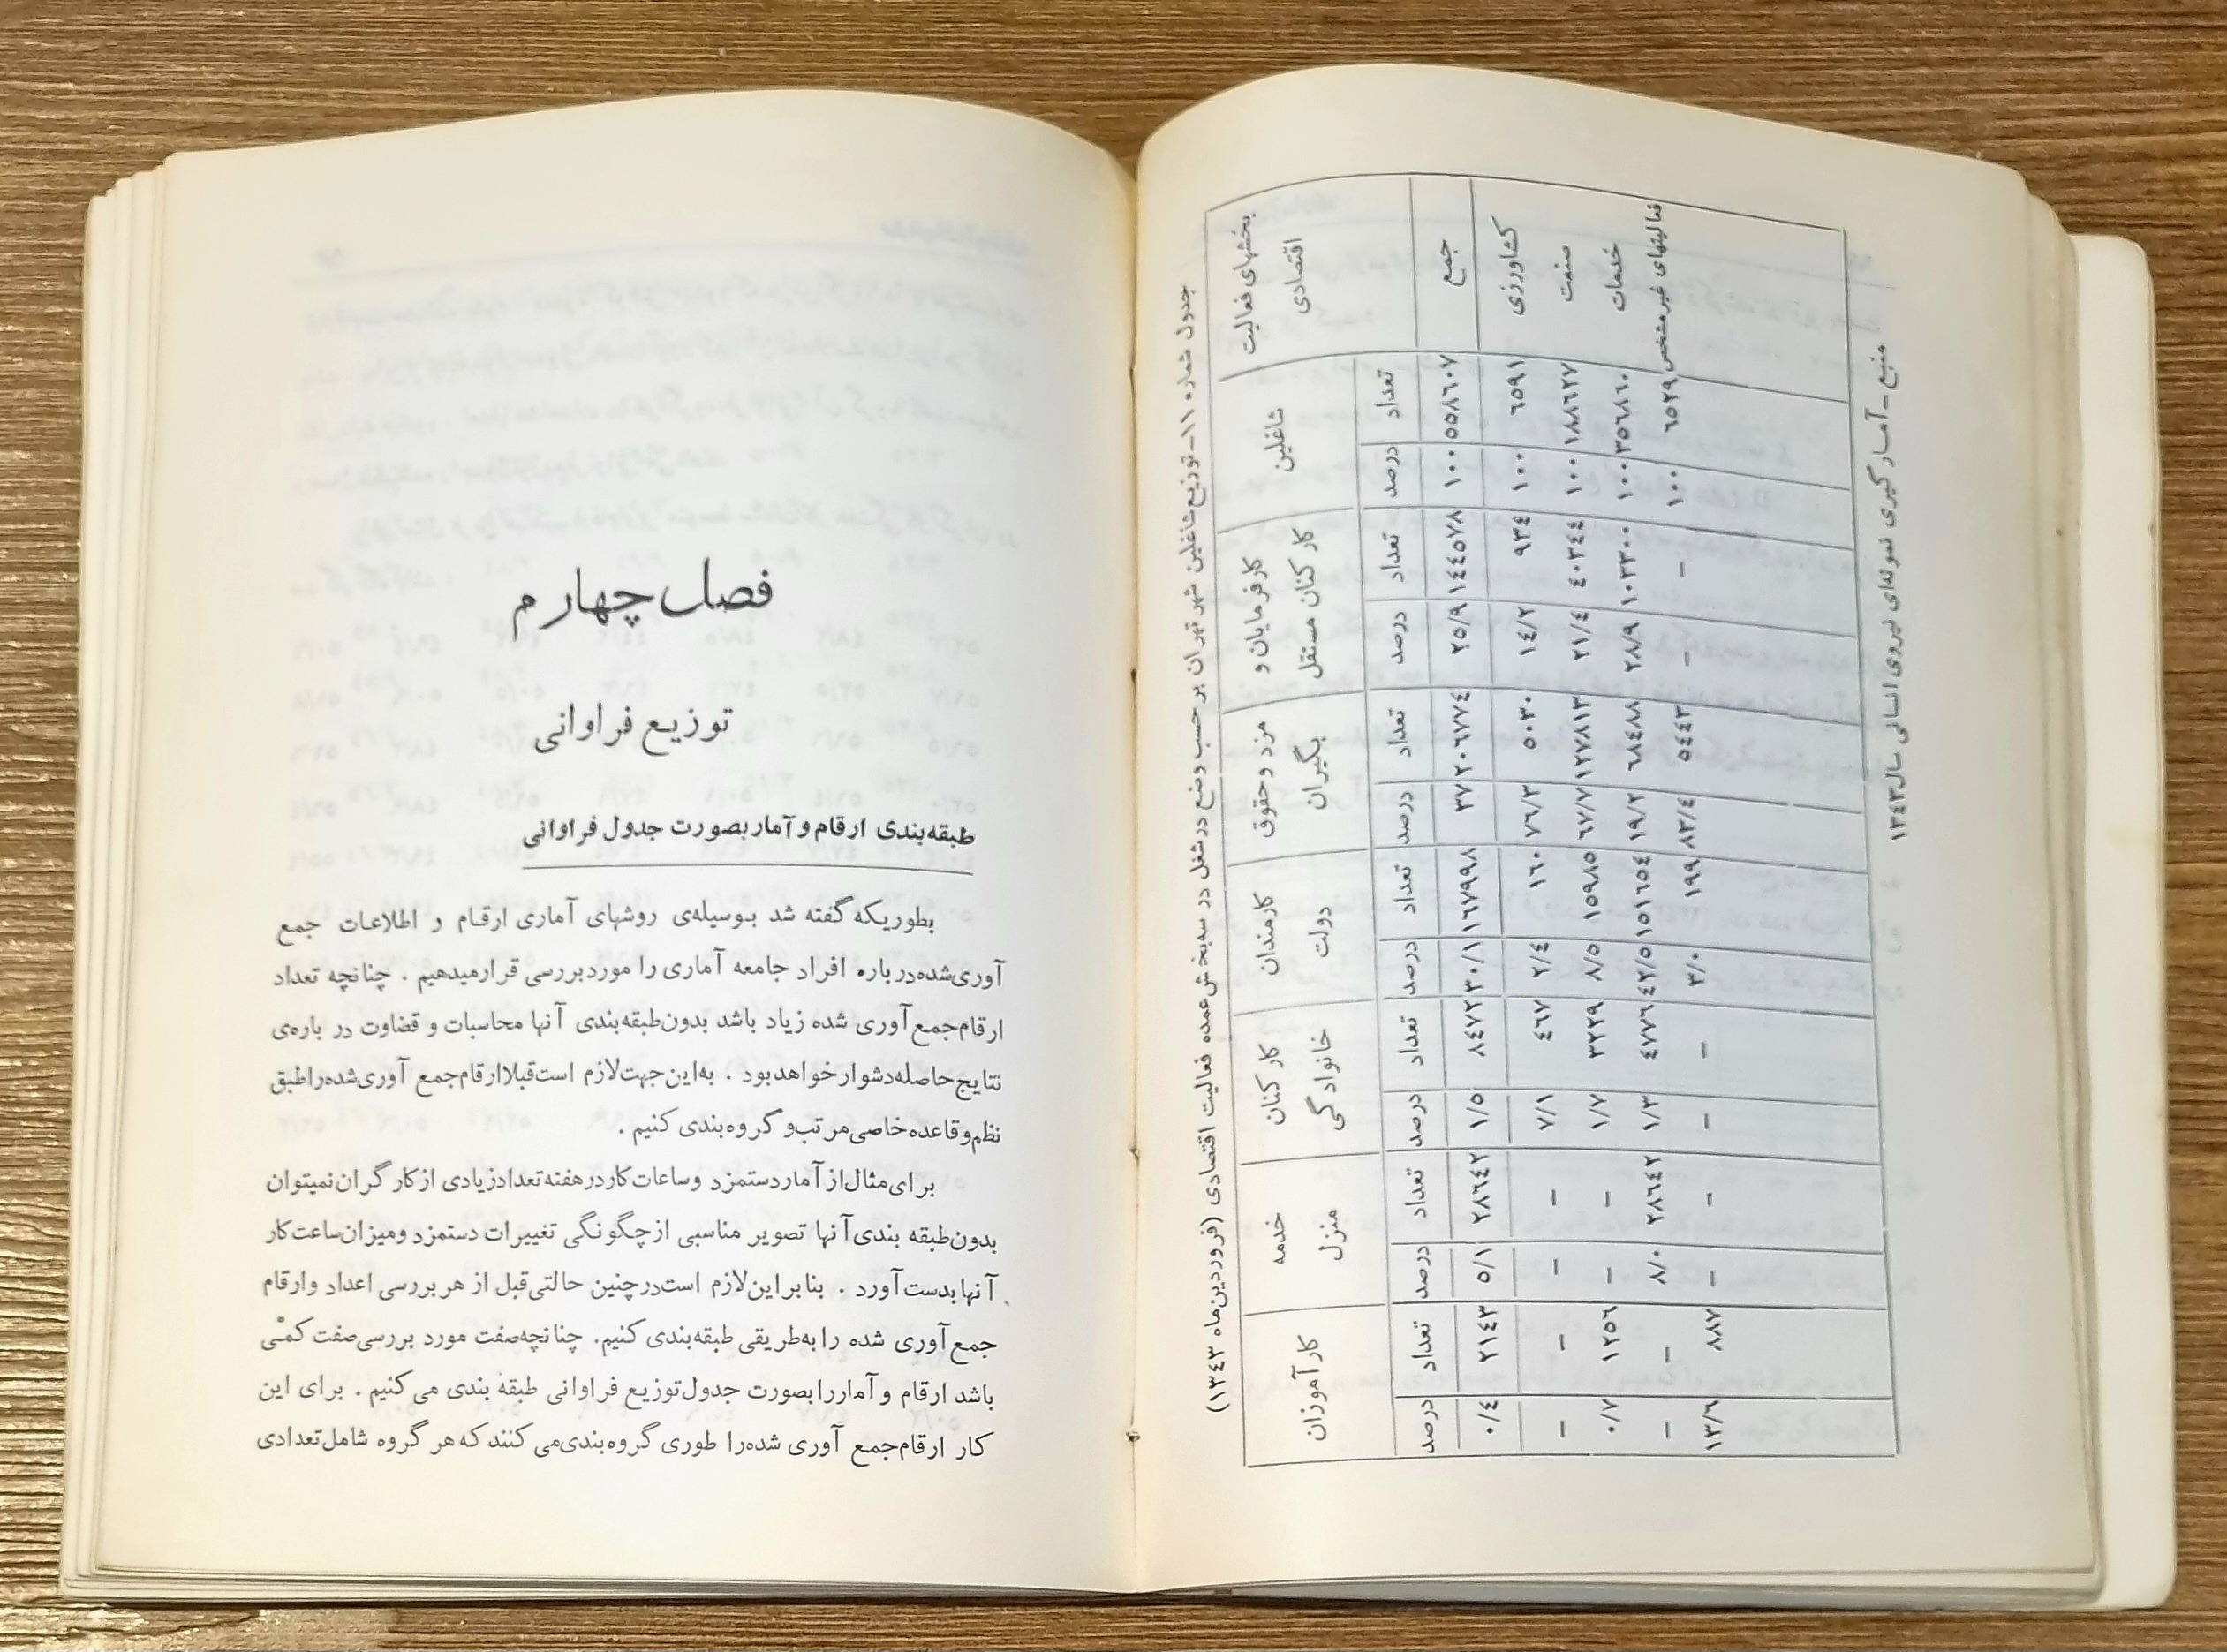 جدول شماره ۱۱- توزیع شاغلین شهر تهران بر حسب وضع در شغل در سه بخش عمده فعالیت اقتصادی (فروردین ماه ۱۳۴۳)
بخشهای فعالیت اقتصادی شاغلین کارفرمایان و کارکنان مستقل مزد و حقوق بگیران کارمندان دولت کارکنان خانوادگی خدمه منزل کارآموزان
تعداد درصد تعداد درصد تعداد درصد تعداد درصد تعداد درصد تعداد درصد تعداد درصد
جمع ۵۵۸۶۰۷ ۱۰۰ ۱۴۴۵۷۸ ۲۵/۹ ۲۰۶۷۷۴ ۳۷ ۱۶۷۹۹۸ ۳۰/۱ ۸۴۷۲ ۱/۵ ۲۸۶۴۲ ۵/۱ ۲۱۴۳ ۰/۴
کشاورزی ۶۵۹۱ ۱۰۰ ۹۳۴ ۱۴/۲ ۵۰۳۰ ۷۶/۳ ۱۶۰ ۲/۴ ۴۶۷ ۷/۱ - - - -
صنعت ۱۸۸۶۲۷ ۱۰۰ ۴۰۳۴۴ ۲۱/۴ ۱۲۷۸۱۳ ۶۷/۷ ۱۵۹۸۵ ۸/۵ ۳۲۲۹ ۱/۷ - - ۱۲۵۶ ۰/۷
خدمات ۳۵۶۸۶۰ ۱۰۰ ۱۰۳۳۰۰ ۲۸/۹ ۶۸۴۸۸ ۱۹/۲ ۱۵۱۶۵۴ ۴۲/۵ ۴۷۷۶ ۱/۳ ۲۸۶۴۲ ۸/۰ - -
فعالیتهای غیر مشخص ۶۵۲۹ ۱۰۰ - - ۵۴۴۳ ۸۳/۴ ۱۹۹ ۳/۰ - - - - ۸۸۷ ۱۳/۶
منبع - آمارگیری نمونه‌ای نیروی انسانی سال ۱۳۴۳
فصل چهارم
توزیع فراوانی
طبقه‌بندی ارقام و آمار بصورت جدول فراوانی
بطوریکه گفته شد بوسیله‌ی روشهای آماری ارقام و اطلاعات جمع
آوری شده درباره افراد جامعه آماری را مورد بررسی قرار میدهیم . چنانچه تعداد
ارقام جمع آوری شده زیاد باشد بدون طبقه‌بندی آنها محاسبات و قضاوت در باره‌ی
نتایج حاصله دشوار خواهد بود . به این جهت لازم است قبلا ارقام جمع آوری شده را طبق
نظم و قاعده خاصی مرتب و گروه بندی کنیم .
برای مثال از آمار دستمزد و ساعات کار در هفته تعداد زیادی از کارگران نمیتوان
بدون طبقه بندی آنها تصویر مناسبی از چگونگی تغییرات دستمزد و میزان ساعت کار
آنها بدست آورد . بنابراین لازم است در چنین حالتی قبل از هر بررسی اعداد و ارقام
جمع آوری شده را به طریقی طبقه‌بندی کنیم. چنانچه صفت مورد بررسی صفت کمّی
باشد ارقام و آمار را بصورت جدول توزیع فراوانی طبقه بندی می کنیم . برای این
کار ارقام جمع آوری شده را طوری گروه بندی می کنند که هر گروه شامل تعدادی